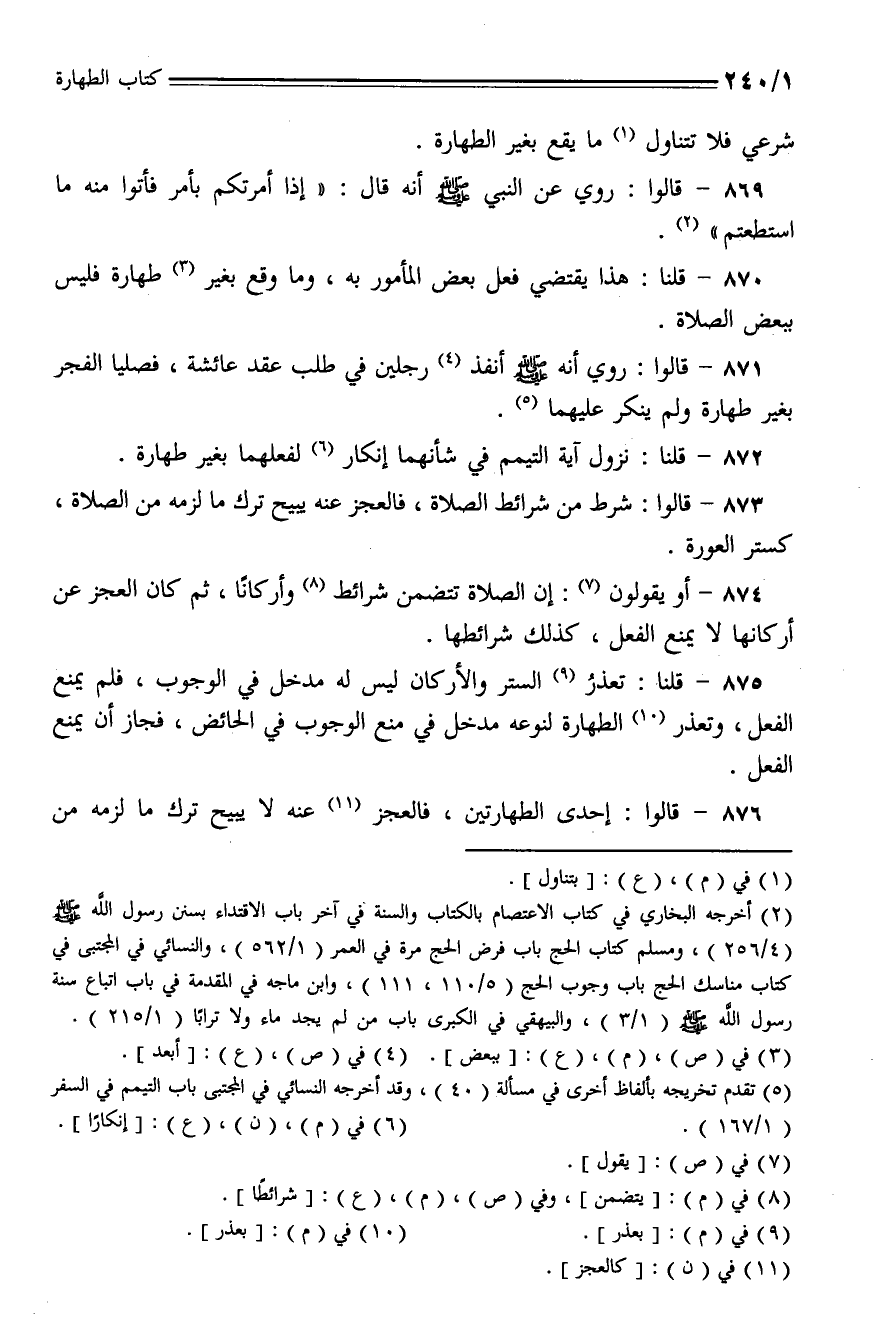 ٢٤٠/١ كتاب الطهارة
شرعي فلا تتناول (١) ما يقع بغير الطهارة .
٨٦٩ - قالوا : روي عن النبي ﷺ أنه قال : « إذا أمرتكم بأمر فأتوا منه ما
استطعتم » (٢) .
٨٧٠ - قلنا : هذا يقتضي فعل بعض المأمور به ، وما وقع بغير (٣) طهارة فليس
ببعض الصلاة .
٨٧١ - قالوا : روي أنه ﷺ أنفذ (٤) رجلين في طلب عقد عائشة ، فصليا الفجر
بغير طهارة ولم ينكر عليهما (٥) .
٨٧٢ - قلنا : نزول آية التيمم في شأنهما إنكار (٦) لفعلهما بغير طهارة .
٨٧٣ - قالوا : شرط من شرائط الصلاة ، فالعجز عنه يبيح ترك ما لزمه من الصلاة ،
كستر العورة .
٨٧٤ - أو يقولون (٧) : إن الصلاة تتضمن شرائط (٨) وأركانًا ، ثم كان العجز عن
أركانها لا يمنع الفعل ، كذلك شرائطها .
٨٧٥ - قلنا : تعذرُ (٩) الستر والأركان ليس له مدخل في الوجوب ، فلم يمنع
الفعل ، وتعذر (١٠) الطهارة لنوعه مدخل في منع الوجوب في الحائض ، فجاز أن يمنع
الفعل .
٨٧٦ - قالوا : إحدى الطهارتين ، فالعجز (١١) عنه لا يبيح ترك ما لزمه من
(١) في ( م ) ، ( ع ) : [ بتناول ] .
(٢) أخرجه البخاري في كتاب الاعتصام بالكتاب والسنة في آخر باب الاقتداء بسنن رسول اللَّه ﷺ
( ٢٥٦/٤ ) ، ومسلم كتاب الحج باب فرض الحج مرة في العمر ( ٥٦٢/١ ) ، والنسائي في المجتبى في
كتاب مناسك الحج باب وجوب الحج ( ١١٠/٥ ، ١١١ ) ، وابن ماجه في المقدمة في باب اتباع سنة
رسول اللَّه ﷺ ( ٣/١ ) ، والبيهقي في الكبرى باب من لم يجد ماء ولا ترابًا ( ٢١٥/١ ) .
(٣) في ( ص ) ، ( م ) ، ( ع ) : [ ببعض ] . (٤) في ( ص ) ، ( ع ) : [ أبعد ] .
(٥) تقدم تخريجه بألفاظ أخرى في مسألة ( ٤٠ ) ، وقد أخرجه النسائي في المجتبى باب التيمم في السفر
( ١٦٧/١ ) . (٦) في ( م ) ، ( ن ) ، ( ع ) : [ إنكارًا ] .
(٧) في ( ص ) : [ يقول ] .
(٨) في ( م ) : [ يتضمن ] ، وفي ( ص ) ، ( م ) ، ( ع ) : [ شرائطًا ] .
(٩) في ( م ) : [ بعذر ] . (١٠) في ( م ) : [ بعذر ] .
(١١) في ( ن ) : [ كالعجز ] .